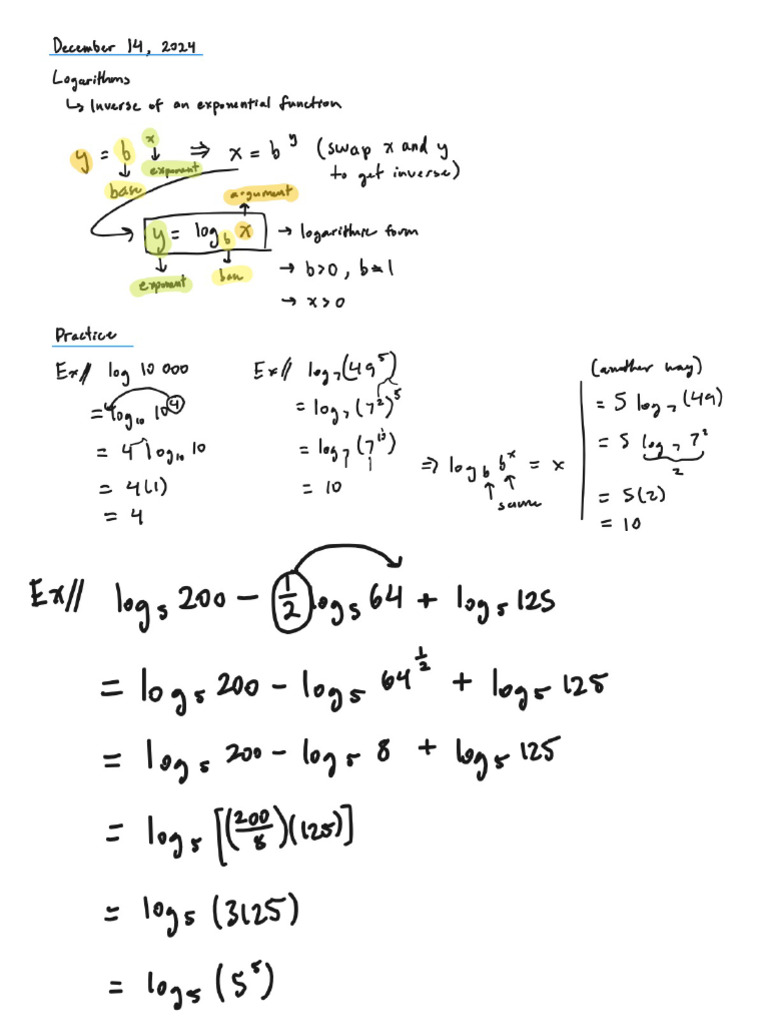 December 14, 2024
Logarithms
↳ Inverse of an exponential function
y = b^x ⇒ x = b^y (swap x and y to get inverse)
base
exponent
argument
y = log_b x → logarithmic form
exponent
base
→ b>0, b≠1
→ x>0
Practice
Ex// log 10 000
= log₁₀ 10^4
= 4 log₁₀ 10
= 4(1)
= 4
Ex// log₇(49^5)
= log₇(7^2)^5
= log₇(7^10)
= 10
⇒ log_b b^x = x
same
(another way)
= 5 log₇(49)
= 5 log₇ 7^2
2
= 5(2)
= 10
Ex// log₅ 200 − 1/2 log₅ 64 + log₅ 125
= log₅ 200 − log₅ 64^(1/2) + log₅ 125
= log₅ 200 − log₅ 8 + log₅ 125
= log₅ [(200/8)(125)]
= log₅ (3125)
= log₅ (5^5)